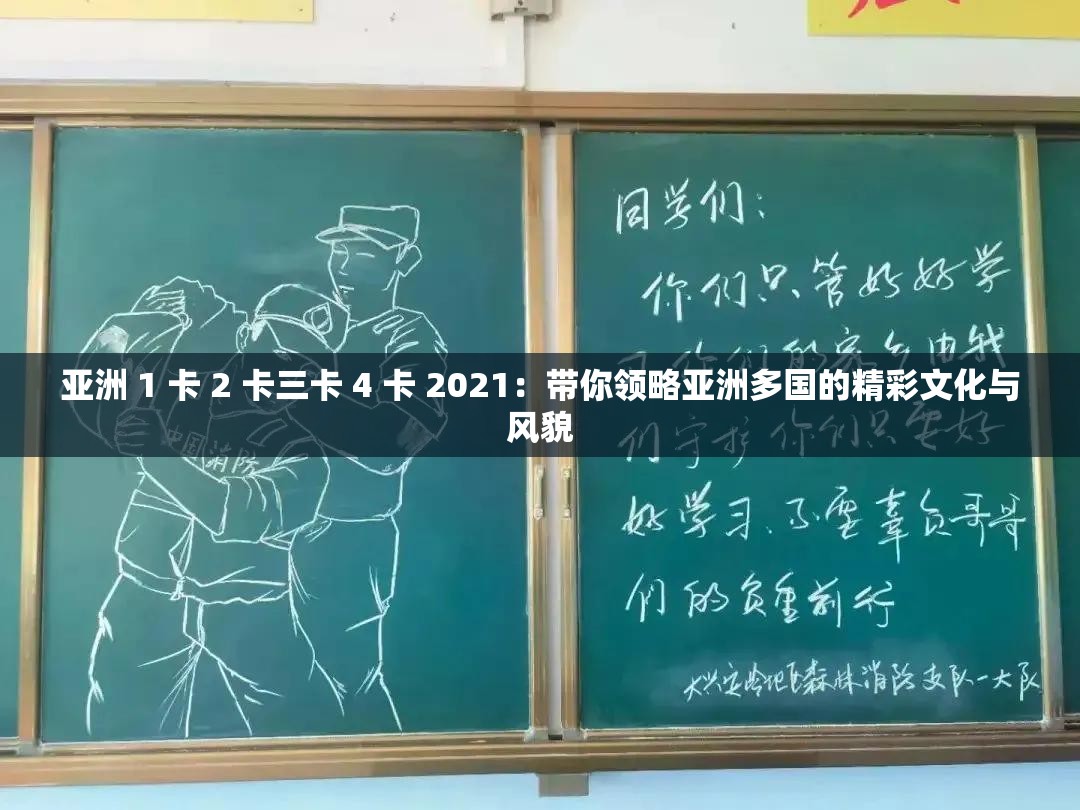 中国消防
同学们：
你们只管好好学
习你们的家乡由我
们守护你们只要好
好学习、不要辜负哥哥
们的负重前行
大兴安岭地区森林消防支队一大队
亚洲 1 卡 2 卡三卡 4 卡 2021：带你领略亚洲多国的精彩文化与
风貌